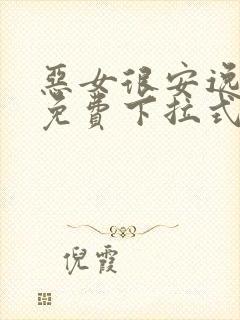 惡女很安逸
免費下拉式
倪霞